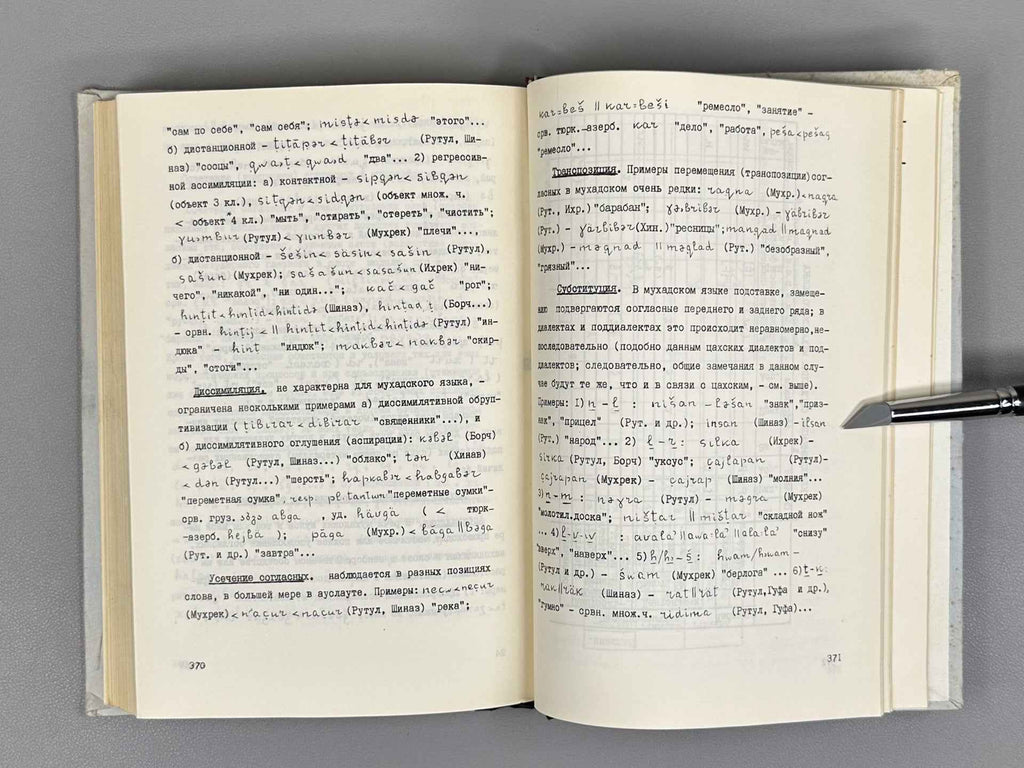 "сам по себе", "сам себя"; mistə < misdə "этого"...
б) дистанционной – ṭiṭāpər < ṭiṭābər (Рутул, Ши-
наз) "сосцы", qwaṣṭ < qwaṣd "два"... 2) регрессив-
ной ассимиляции: а) контактной – sipqən < sibqən
(объект 3 кл.), sitqən < sidqən (объект множ. ч.
< объект 4 кл.) "мыть", "стирать", "стереть", "чистить";
(Рутул) < (Мухрек) "плечи"...,
б) дистанционной – šešin < sašin < sašin (Рутул),
sašun (Мухрек); sašašun < sasašun (Ихрек) "ни-
чего", "никакой", "ни один..."; kač < gač "рог";
hinṭit < hinṭid < hinṭidə (Шиназ), (Борч...)
– срвн. hinṭij < || hinṭit < hinṭid < hinṭidə (Рутул) "ин-
дюка" – hint "индюк"; makbər < nakbər "скир-
ды", "стоги"...
Диссимиляция. не характерна для мухадского языка, –
ограничена несколькими примерами а) диссимилятивной обруп-
тивизации (ṭibirar < dibirar "священники"...), и
б) диссимилятивного оглушения (аспирации): kəbəl (Борч)
< gəbəl (Рутул, Шиназ...) "облако"; tən (Хинав)
< dən (Рутул...) "шерсть"; hapkabır < habgabər
"переметная сумка", resp. pl. tantum "переметные сумки"–
срв. груз. abga , уд. havga ( < тюрк-
-азерб. hejba ); paga (Мухр.) < bāga || bəga
(Рут. и др.) "завтра"...
Усечение согласных. наблюдается в разных позициях
слова, в большей мере в ауслауте. Примеры: < necur
(Мухрек) < naçur < naçur (Рутул, Шиназ) "река";
370
kar=beš || kar=beši "ремесло", "занятие" –
срв. тюрк.-азерб. kar "дело", "работа", peša < pešag
"ремесло"...
Транспозиция. Примеры перемещения (транспозиции) сог-
ласных в мухадском очень редки: ragna (Мухр.) < nagra
(Рут., Ихр.) "барабан"; γəbribər (Мухр.) – γābribər
(Рут.) – γārbibər (Хин.) "ресницы"; mangad || magnad
(Мухр.) – məgnad || məglad (Рут.) "безобразный",
"грязный"...
Субституция. В мухадском языке подставке, замеще-
нию подвергаются согласные переднего и заднего ряда; в
диалектах и поддиалектах это происходит неравномерно, не-
последовательно (подобно данным цахских диалектов и под-
диалектов; следовательно, общие замечания в данном слу-
чае будут те же, что и в связи с цахским, – см. выше).
Примеры: I) n – l : nišan – ləšan "знак", "приз-
нак", "прицел" (Рут. и др.); insan (Шиназ) – ilsan
(Рут.) "народ"... 2) l – r : silka (Ихрек) –
sirka (Рутул, Борч) "уксус"; çajlapan (Рутул)–
çajrapan (Мухрек) – çajrap (Шиназ) "молния"...
3) n – m : nəγra (Рутул) – məgra (Мухрек)
"молотил.доска"; ništar || mištar "складной нож"
... 4) l-v-w : avala' || awa-la' || ala-la' "снизу"
"вверх", "наверх"... 5) h/h – š : hwam/hwam –
(Рутул и др.) – šwam (Мухрек) "берлога" ... 6) t-k:
rak || rāk (Шиназ) – rat || rāt (Рутул, Гуфа и др.),
"гумно" – срвн. множ.ч. ridima (Рутул, Гуфа)...
371